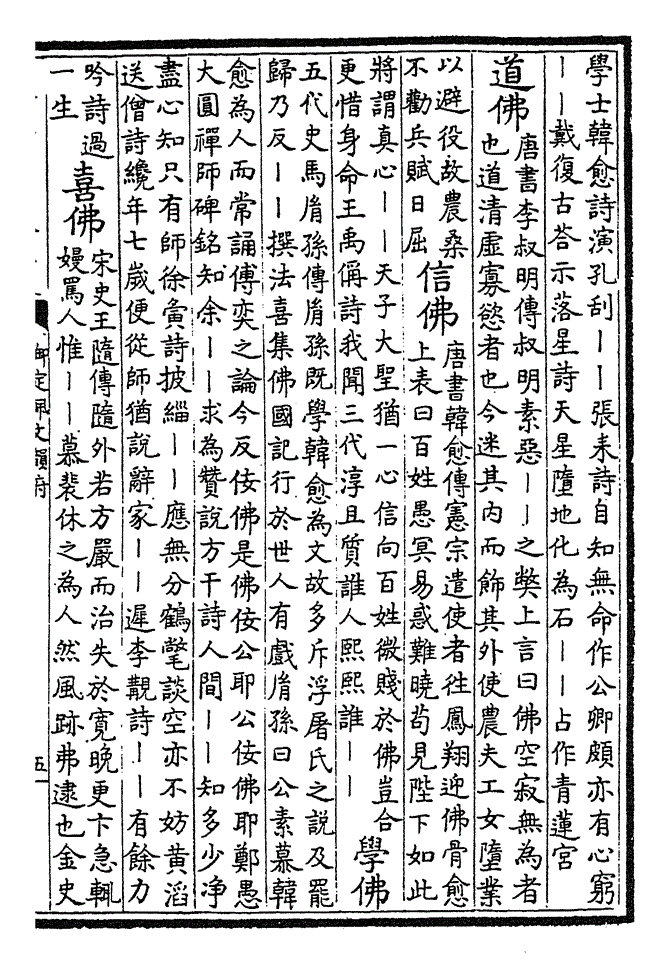 學士韓愈詩演孔刮丨丨張耒詩自知無命作公卿頗亦有心窮
丨丨戴復古荅示落星詩天星墮地化為石丨丨占作青蓮宫
道佛
唐書李叔明傳叔明素惡丨丨之獘上言曰佛空寂無為者
也道清虛寡慾者也今迷其内而飾其外使農夫工女墮業
以避役故農桑
不勸兵賦日屈
信佛
唐書韓愈傳憲宗遣使者往鳳翔迎佛骨愈
上表曰百姓愚冥易惑難曉茍見陛下如此
將謂真心丨丨天子大聖猶一心信向百姓微賤於佛豈合
更惜身命王禹偁詩我聞三代淳且質誰人熙熙誰丨丨
學佛
五代史馬胤孫傳胤孫既學韓愈為文故多斥浮屠氏之説及罷
歸乃反丨丨撰法喜集佛國記行於世人有戲胤孫曰公素慕韓
愈為人而常誦傅奕之論今反佞佛是佛佞公耶公佞佛耶鄭愚
大圓禪師碑銘知余丨丨求為贊説方干詩人間丨丨知多少净
盡心知只有師徐夤詩披緇丨丨應無分鶴氅談空亦不妨黄滔
送僧詩纔年七歲便從師猶説辭家丨丨遲李覯詩丨丨有餘力
吟詩過
一生
喜佛
宋史王隨傳隨外若方嚴而治失於寛晩更卞急輒
嫚罵人惟丨丨慕裴休之為人然風跡弗逮也金史
御定佩文韻府
五